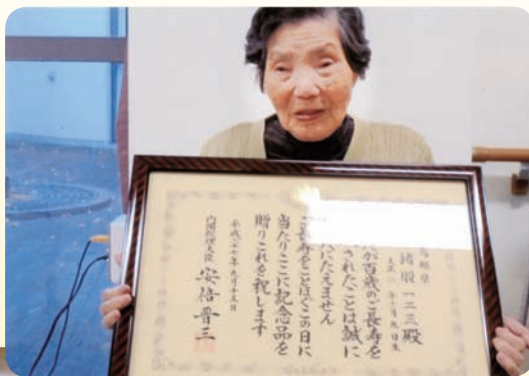 島県
猪股一二三殿
が百歳のご長寿を
されたことは誠に
にたえません
ご長寿をことほぐこの日に
当たりここに記念品を
贈りこれを祝します
年九月十五日
内閣総理大臣 安倍晋三